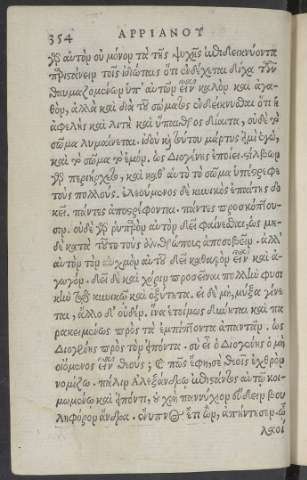 354 ΑΡΡΙΑΝΟΥ
γὰρ αὐτὸν οὐ μόνον τὰ τῆς ψυχῆς ἐπιδεικνύοντα
παριστάνειν τοῖς ἰδιώταις ὅτι ἐνδέχεται δίχα τῶν
θαυμαζομένων ὑπ' αὐτῶν εἶναι καλὸν καὶ ἀγα-
θὸν, ἀλλὰ καὶ διὰ τοῦ σώματος ἐνδείκνυσθαι ὅτι ἡ
ἀφελὴς καὶ λιτὴ καὶ ὕπαιθρος δίαιτα, οὐδὲ τὸ
σῶμα λυμαίνεται. ἰδοὺ καὶ τούτου μάρτυς εἰμὶ ἐγὼ,
καὶ τὸ σῶμα τὸ ἐμόν. ὡς Διογένης ἐποίει. στίλβων
γὰρ περιήρχετο, καὶ κατ' αὐτὸ τὸ σῶμα ἐπέστρεφε
τοὺς πολλούς. ἐλεούμενος δὲ κυνικὸς ἐπαίτης δο
κεῖ. πάντες ἀποστρέφονται. πάντες προσκόπτου-
σιν. οὐδὲ γὰρ ῥυπαρὸν αὐτὸν δεῖ φαίνεσθαι, ὡς μη-
δὲ κατὰ τοῦτο τοὺς ἀνθρώπους ἀποσοβεῖν. ἀλλ'
αὐτὸν τὸν αὐχμὸν αὐτοῦ δεῖ καθαρὸν εἶναι καὶ ἀ-
γωγόν. δεῖ δὲ καὶ χάριν προσεῖναι πολλὴν φυσι
κὴν τῷ κυνικῷ καὶ ὀξύτητα. εἰ δὲ μὴ, μύξα γίνε
ται, ἄλλο δ' οὐδέν. ἵνα ἑτοίμως δύνηται καὶ πα
ρακειμένως πρὸς τὰ ἐμπίπτοντα ἀπαντᾶν. ὡς
Διογένης πρὸς τὸν εἰπόντα. σὺ εἶ ὁ Διογένης ὁ μὴ
οἰόμενος εἶναι θεούς; καὶ πῶς ἔφη, σὲ θεοῖς ἐχθρὸν
νομίζω. πάλιν Ἀλεξάνδρῳ ἐπιστάντι αὐτῷ κοι-
μωμένῳ καὶ εἰπόντι, οὐ χρὴ παννύχιον εὕδειν βου
ληφόρον ἄνδρα. ἔνυπνος ἔτι ὢν, ἀπήντησεν. ᾧ
λαοί